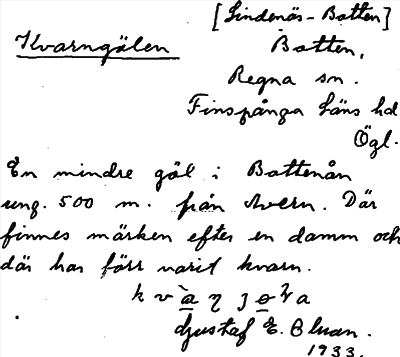 [Lindenäs-Botten]
Kvarngölen
Botten,
Regna sn.
Finspånga Läns hd
Ögl.
En mindre göl i Bottenån
ung. 500 m. från Avern. Där
finnes märken efter en damm och
där har förr varit kvarn.
Gustaf E. Bluan.
1933.